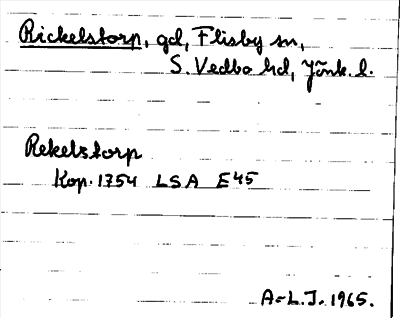 Rickelstorp, gd, Flisby sn,
S. Vedbo hd, Jönk. l.
Rekelstorp
Kop. 1754 LSA E45
A-L.J. 1965.